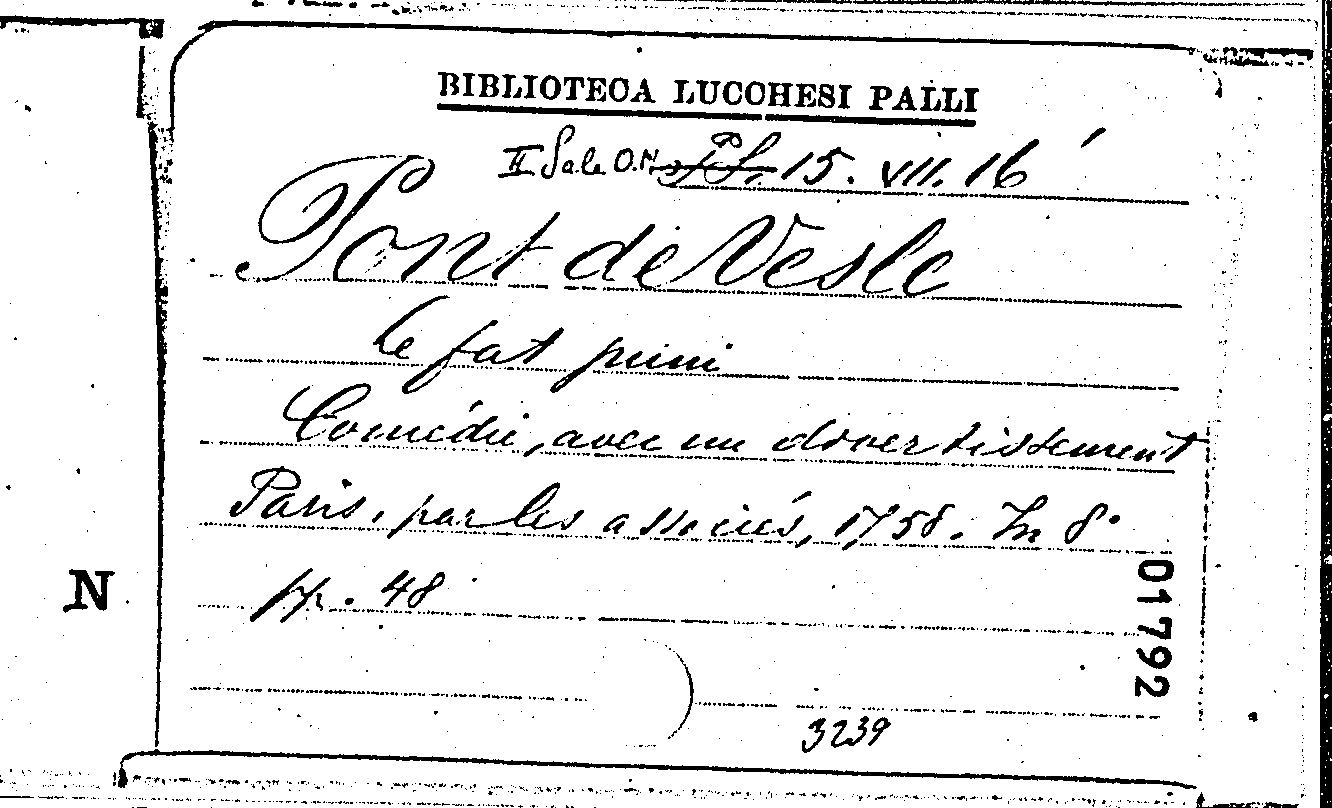 BIBLIOTECA LUCCHESI PALLI
II Sala O.N. P.S. 15. VII. 16
Pont de Vesle
Le fat puni
Comédie, avec un divertissement
Paris, par les associés, 1758. In 8°
pp. 48
N
01792
3239